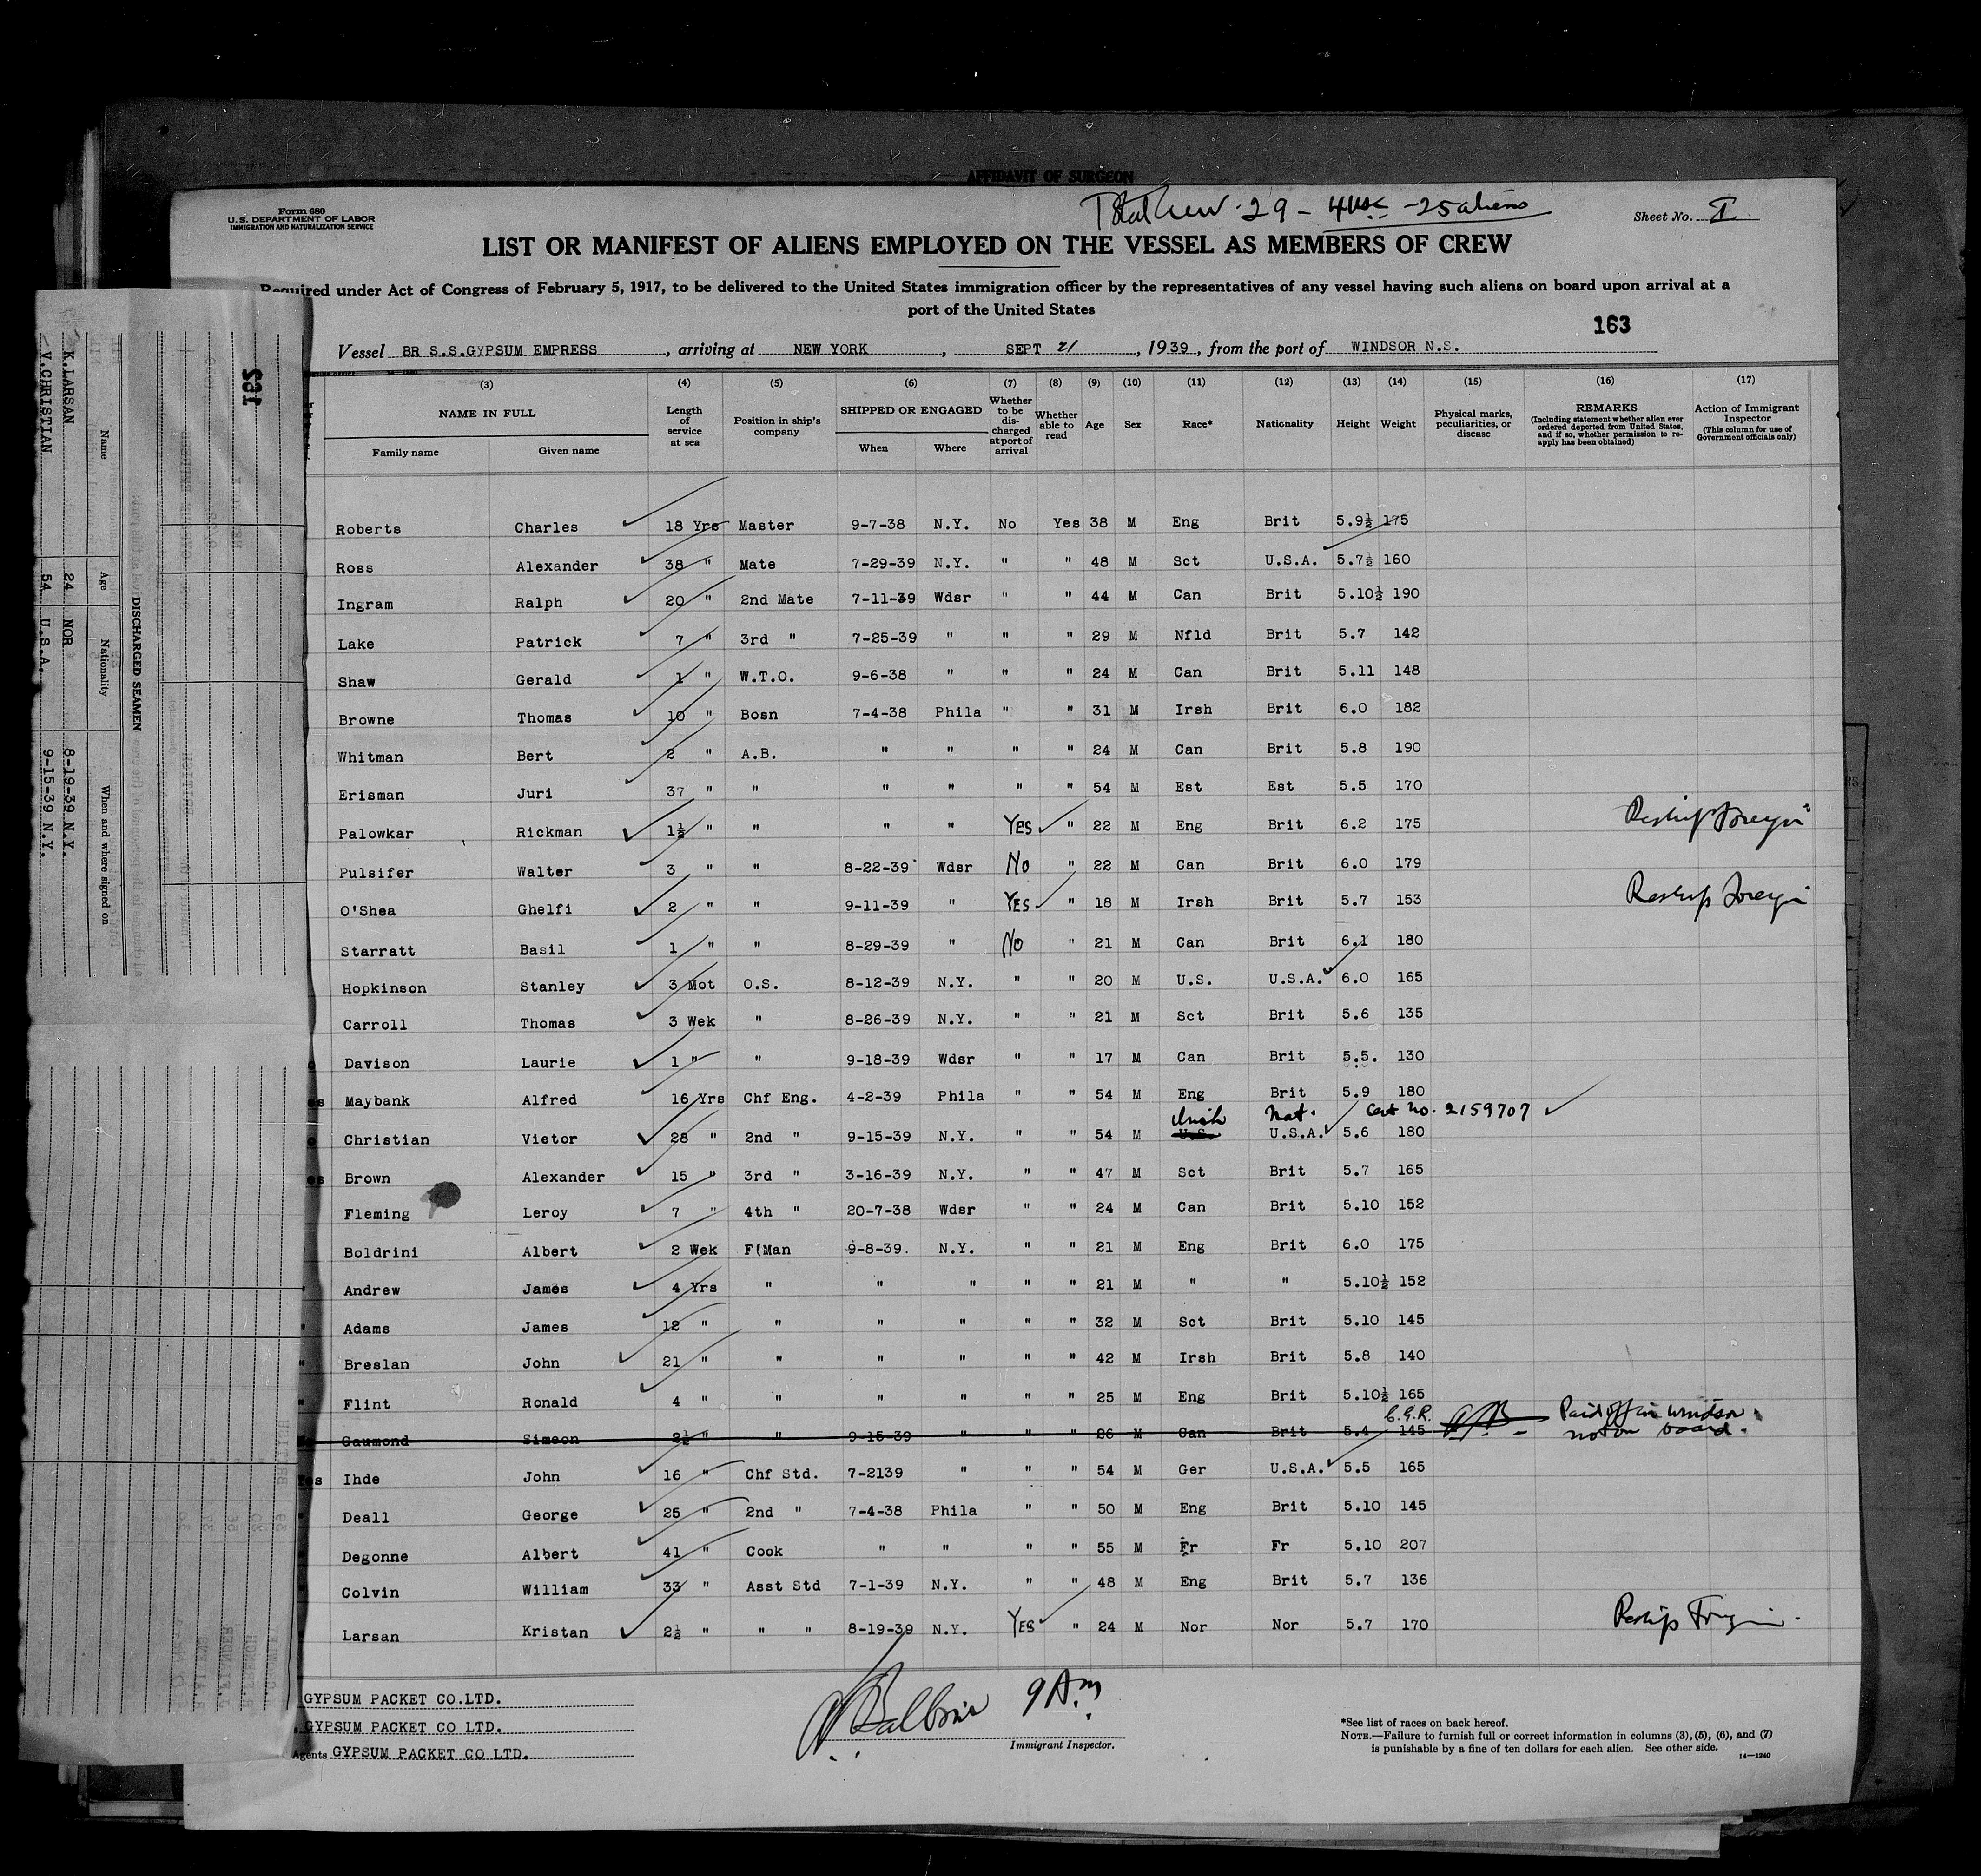 AFFIDAVIT OF SURGEON
Form 680
U.S. DEPARTMENT OF LABOR
IMMIGRATION AND NATURALIZATION SERVICE
Total Crew 29 - 4 USC - 25 aliens
Sheet No. I
LIST OR MANIFEST OF ALIENS EMPLOYED ON THE VESSEL AS MEMBERS OF CREW
Required under Act of Congress of February 5, 1917, to be delivered to the United States immigration officer by the representatives of any vessel having such aliens on board upon arrival at a
port of the United States
163
Vessel BR S.S.GYPSUM EMPRESS, arriving at NEW YORK, SEPT 21, 1939, from the port of WINDSOR N.S.
(3) (4) (5) (6) (7) (8) (9) (10) (11) (12) (13) (14) (15) (16) (17)
NAME IN FULL Family name Given name
Length of service at sea
Position in ship's company
SHIPPED OR ENGAGED When Where
Whether to be discharged at port of arrival
Whether able to read
Age Sex Race* Nationality Height Weight
Physical marks, peculiarities, or disease
REMARKS (Including statement whether alien ever ordered deported from United States, and if so, whether permission to reapply has been obtained)
Action of Immigrant Inspector (This column for use of Government officials only)
Roberts Charles 18 Yrs Master 9-7-38 N.Y. No Yes 38 M Eng Brit 5.9½ 175
Ross Alexander 38 " Mate 7-29-39 N.Y. " " 48 M Sct U.S.A. 5.7½ 160
Ingram Ralph 20 " 2nd Mate 7-11-39 Wdsr " " 44 M Can Brit 5.10½ 190
Lake Patrick 7 " 3rd " 7-25-39 " " " 29 M Nfld Brit 5.7 142
Shaw Gerald 1 " W.T.O. 9-6-38 " " " 24 M Can Brit 5.11 148
Browne Thomas 10 " Bosn 7-4-38 Phila " " 31 M Irsh Brit 6.0 182
Whitman Bert 2 " A.B. " " " " 24 M Can Brit 5.8 190
Erisman Juri 37 " " " " " " 54 M Est Est 5.5 170
Palowkar Rickman 1½ " " " " YES " 22 M Eng Brit 6.2 175 Reship Foreign
Pulsifer Walter 3 " " 8-22-39 Wdsr No " 22 M Can Brit 6.0 179
O'Shea Ghelfi 2 " " 9-11-39 " YES " 18 M Irsh Brit 5.7 153 Reship Foreign
Starratt Basil 1 " " 8-29-39 " No " 21 M Can Brit 6.1 180
Hopkinson Stanley 3 Mot O.S. 8-12-39 N.Y. " " 20 M U.S. U.S.A. 6.0 165
Carroll Thomas 3 Wek " 8-26-39 N.Y. " " 21 M Sct Brit 5.6 135
Davison Laurie 1 " " 9-18-39 Wdsr " " 17 M Can Brit 5.5. 130
Maybank Alfred 16 Yrs Chf Eng. 4-2-39 Phila " " 54 M Eng Brit 5.9 180
Irish Nat. Cert no. 2159707
Christian Vietor 28 " 2nd " 9-15-39 N.Y. " " 54 M U.S. U.S.A. 5.6 180
Brown Alexander 15 " 3rd " 3-16-39 N.Y. " " 47 M Sct Brit 5.7 165
Fleming Leroy 7 " 4th " 20-7-38 Wdsr " " 24 M Can Brit 5.10 152
Boldrini Albert 2 Wek F(Man 9-8-39. N.Y. " " 21 M Eng Brit 6.0 175
Andrew James 4 Yrs " " " " " 21 M " " 5.10½ 152
Adams James 12 " " " " " " 32 M Sct Brit 5.10 145
Breslan John 21 " " " " " " 42 M Irsh Brit 5.8 140
Flint Ronald 4 " " " " " " 25 M Eng Brit 5.10½ 165
Gaumond Simeon 2½ " " 9-15-39 " " " 26 M Can Brit 5.4 145 Paid off in Windsor
not on board.
Ihde John 16 " Chf Std. 7-2139 " " " 54 M Ger U.S.A. 5.5 165
Deall George 25 " 2nd " 7-4-38 Phila " " 50 M Eng Brit 5.10 145
Degonne Albert 41 " Cook " " " " 55 M Fr Fr 5.10 207
Colvin William 33 " Asst Std 7-1-39 N.Y. " " 48 M Eng Brit 5.7 136
Larsan Kristan 2½ " " " 8-19-39 N.Y. YES " 24 M Nor Nor 5.7 170 Reship Foreign
GYPSUM PACKET CO.LTD.
GYPSUM PACKET CO LTD.
Agents GYPSUM PACKET CO LTD.
9 Am
Immigrant Inspector.
*See list of races on back hereof.
NOTE.—Failure to furnish full or correct information in columns (3), (5), (6), and (7)
is punishable by a fine of ten dollars for each alien. See other side.
14—1240
DISCHARGED SEAMEN
Name Age Nationality When and where signed on
K.LARSAN 24 NOR 8-19-39 N.Y.
V.CHRISTIAN 54 U.S.A. 9-15-39 N.Y.